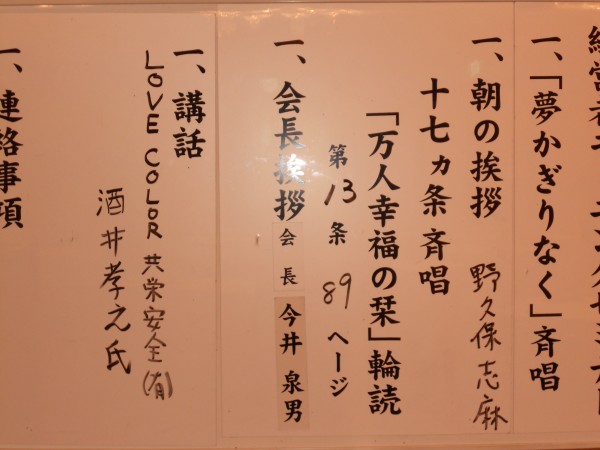 一、「夢かぎりなく」斉唱
一、朝の挨拶 野久保志麻
十七ヵ条斉唱
「万人幸福の栞」輪読
第13条 89ページ
一、会長挨拶 会長 今井泉男
一、講話
LOVE COLOR 共栄安全(有)
酒井孝之氏
一、連絡事項